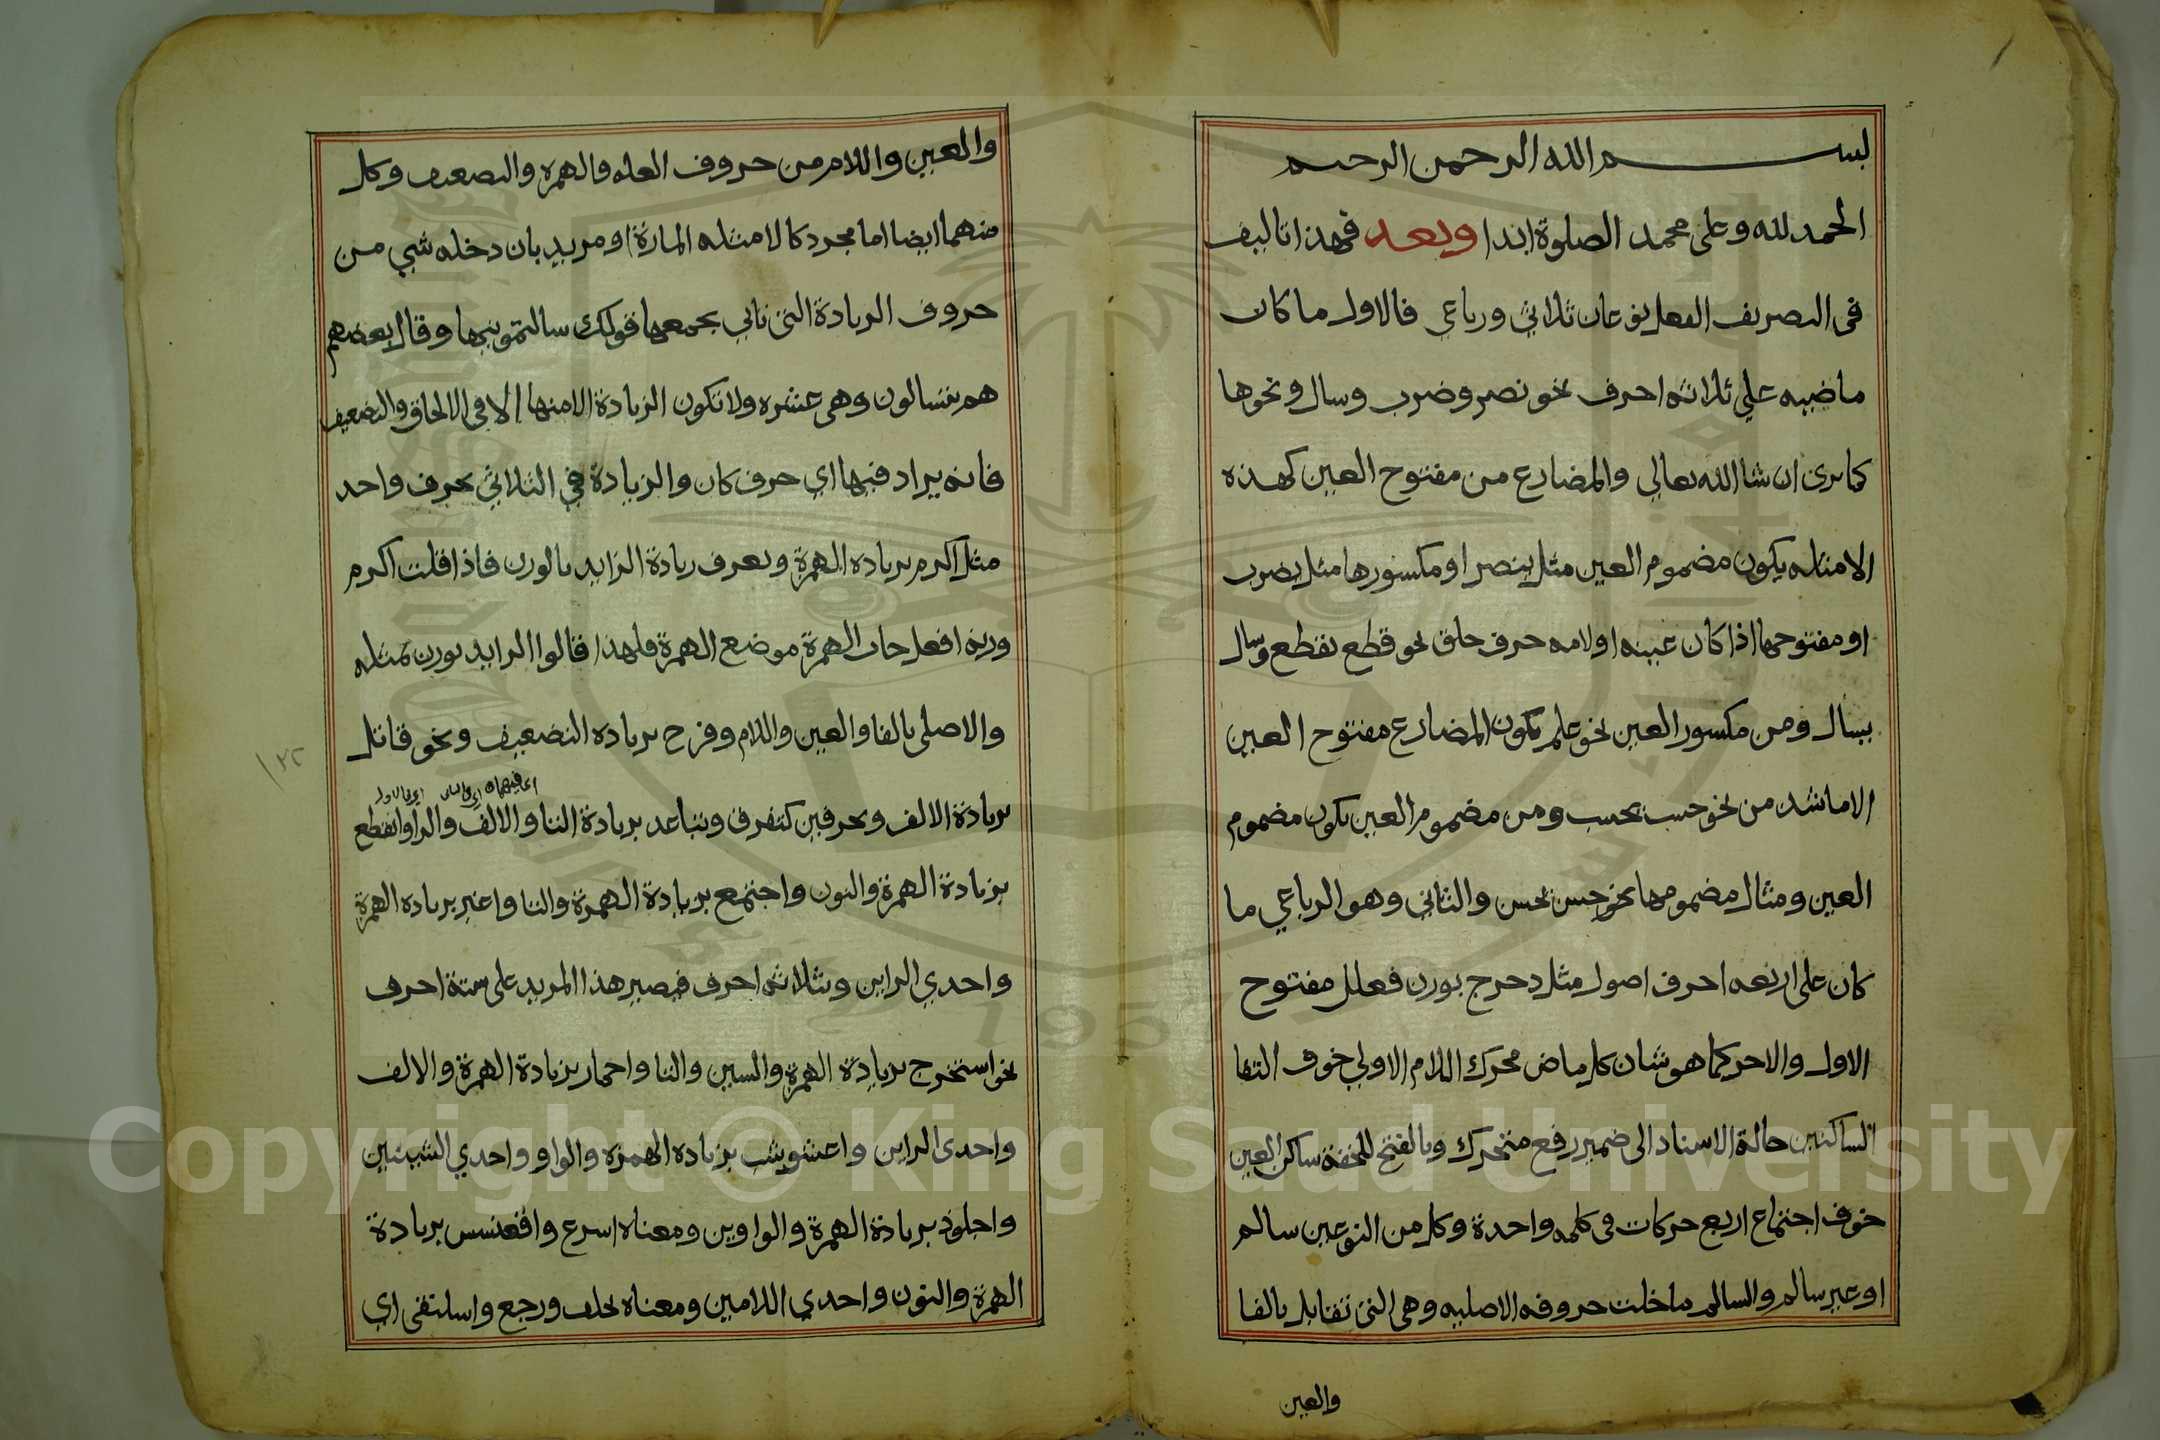 بسم الله الرحمن الرحيم
الحمد لله وعلى محمد الصلوة ابدا وبعد فهذا تاليف
في التصريف الفعل نوعان ثلاثي ورباعي فالاول ما كان
ماضيه علي ثلاثه احرف نحو نصر وضرب وسال ونحوها
كما ترى ان شا الله تعالي والمضارع من مفتوح العين كهذه
الامثله يكون مضموم العين مثل ينصر او مكسورها مثل يضرب
او مفتوحها اذا كان عينه او لامه حرف حلق نحو قطع يقطع وسال
يسأل ومن مكسور العين نحو علم يكون المضارع مفتوح العين
الا ما شد من نحو حسب يحسب ومن مضموم العين يكون مضموم
العين ومثال مضمومها نحو حسن يحسن والثاني وهو الرباعي ما
كان على اربعه احرف اصول مثل دحرج بوزن فعلل مفتوح
الاول والاخر كما هو شان كل ماض محرك اللام الاولي خوف التقا
الساكنين حالة الاسناد الى ضمير رفع متحرك وبالفتح للخفة ساكن العين
خوف اجتماع اربع حركات في كلمه واحدة وكل من النوعين سالم
او غير سالم والسالم ما خلت حروفه الاصليه وهي التي تقابل بالفا
والعين
والعين واللام من حروف العله والهمزه والتضعيف وكل
منهما ايضا اما مجرد كالامثله المارة او مزيد بان دخله شي من
حروف الزيادة التي تاتي يجمعها قولك سالتمونيها وقال بعضهم
هم يتسالون وهي عشره ولا تكون الزيادة الا منها الا في الالحاق والتضعيف
فانه يزاد فيها اي حرف كان والزيادة في الثلاثي بحرف واحد
مثل اكرم بزياده الهمزة ويعرف زيادة الزايد بالوزن فاذا قلت اكرم
وزنه افعل جات الهمزة موضع الهمزة فلهذا قالوا الزايد يوزن بمثله
والاصلي بالفا والعين واللام وفرح بزياده التضعيف ونحو قاتل
بزيادة الالف وبحرفين كتفرق وتباعد بزيادة التا والالف والرا وانقطع
بزيادة الهمزة والنون واجتمع بزيادة الهمزة والتا واغبر بزياده الهمزة
واحدي الراين وبثلاثه احرف فيصير هذا المزيد على ستة احرف
نحو استخرج بزيادة الهمزة والسين والتا واحمار بزيادة الهمزة والالف
واحدى الراين واعشوشب بزياده الهمزه والواو واحدي الشينين
واجلوذ بزيادة الهمزة والواوين ومعناه اسرع واقعنسس بزيادة
الهمزة والنون واحدي اللامين ومعناه تخلف ورجع واسلنقى اي